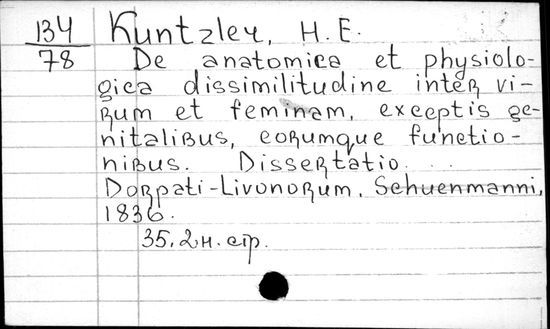 134 Kuntzler, H. E.
78 De anatomica et physiolo-
gica dissimilitudine inter vi-
rum et feminam, exceptis ge-
nitalibus, eorumque functio-
nibus. Dissertatio...
Dorpati-Livonorum, Schuenmanni,
1836.
35, 2 н. стр.